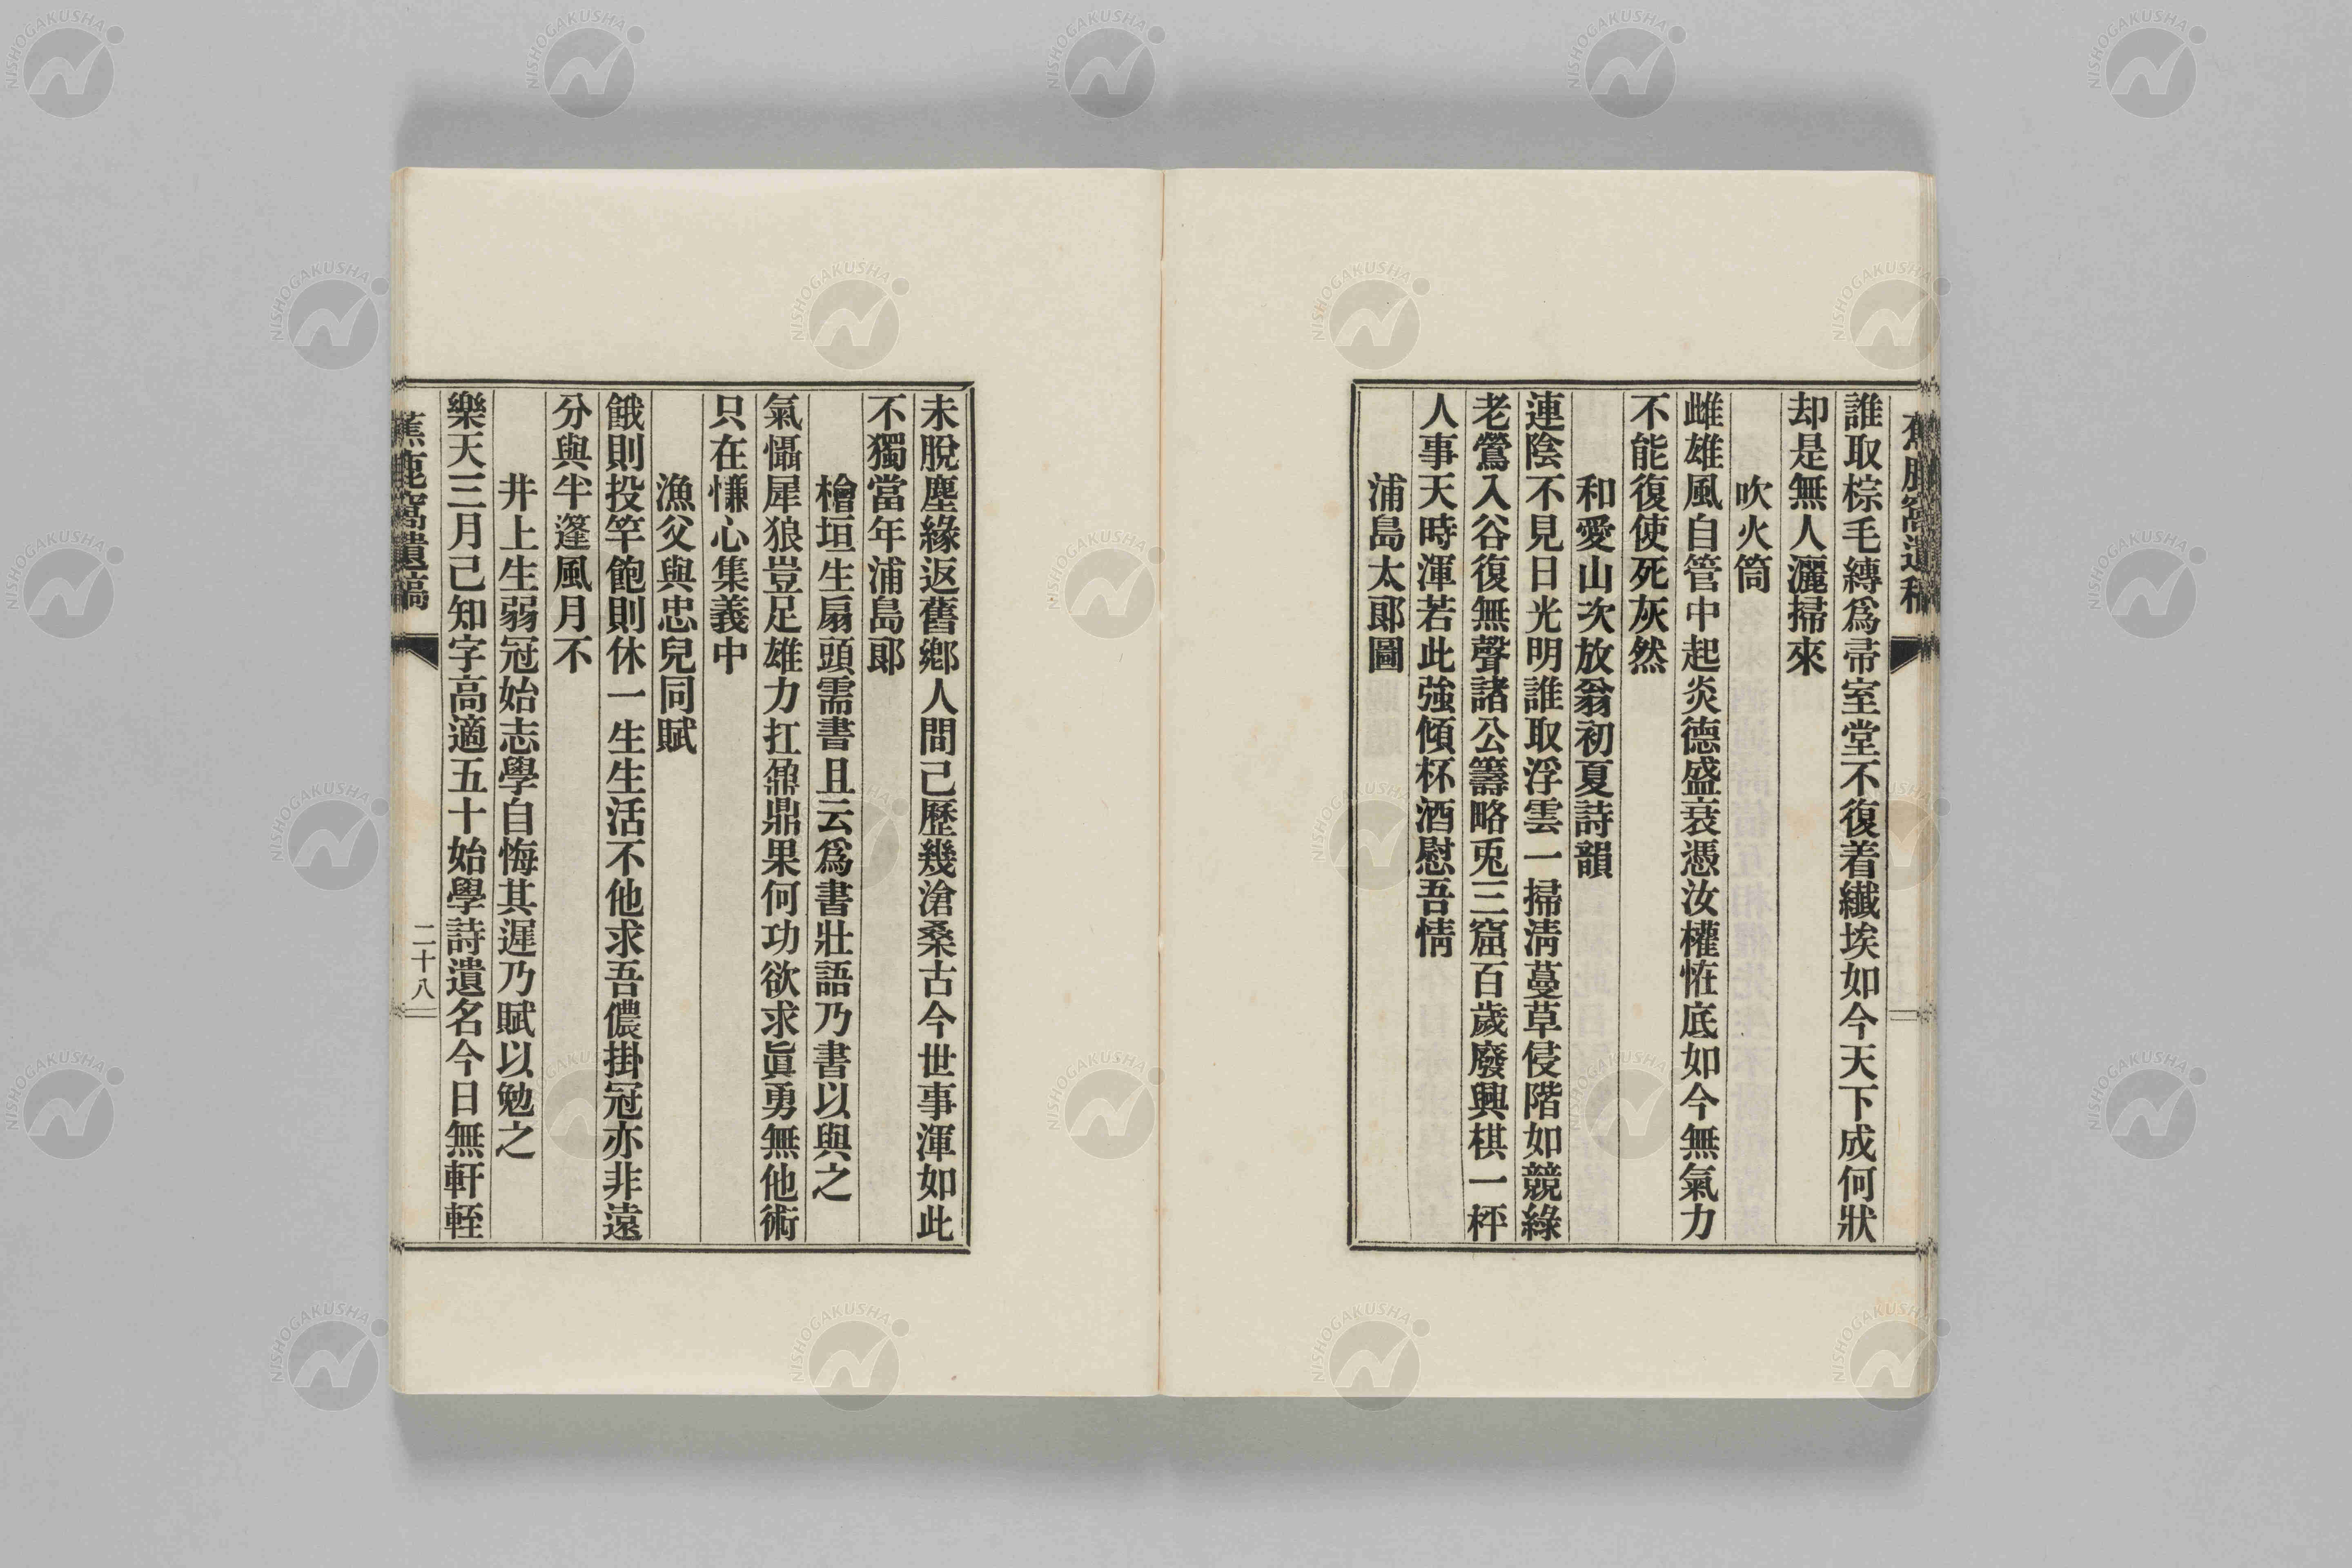 誰取棕毛縛爲帚室堂不復着纎埃如今天下成何狀
却是無人灑掃來
吹火筒
雌雄風自管中起炎德盛衰憑汝權恠底如今無氣力
不能復使死灰然
和愛山次放翁初夏詩韻
連陰不見日光明誰取浮雲一掃淸蔓草侵階如競綠
老鶯入谷復無聲諸公籌略兎三窟百歲廢興棋一枰
人事天時渾若此強傾杯酒慰吾情
浦島太郞圖
未脫塵緣返舊鄕人間己歷幾滄桑古今世事渾如此
不獨當年浦島郞
檜垣生扇頭需書且云爲書壯語乃書以與之
氣懾犀狼豈足雄力扛鼐鼎果何功欲求眞勇無他術
只在慊心集義中
漁父與忠兒同賦
餓則投竿飽則休一生生活不他求吾儂掛冠亦非遠
分與半篷風月不
井上生弱冠始志學自悔其遲乃賦以勉之
樂天三月己知字高適五十始學詩遺名今日無軒輊
蕉鹿窩遺稿
二十八
NISHOGAKUSHA